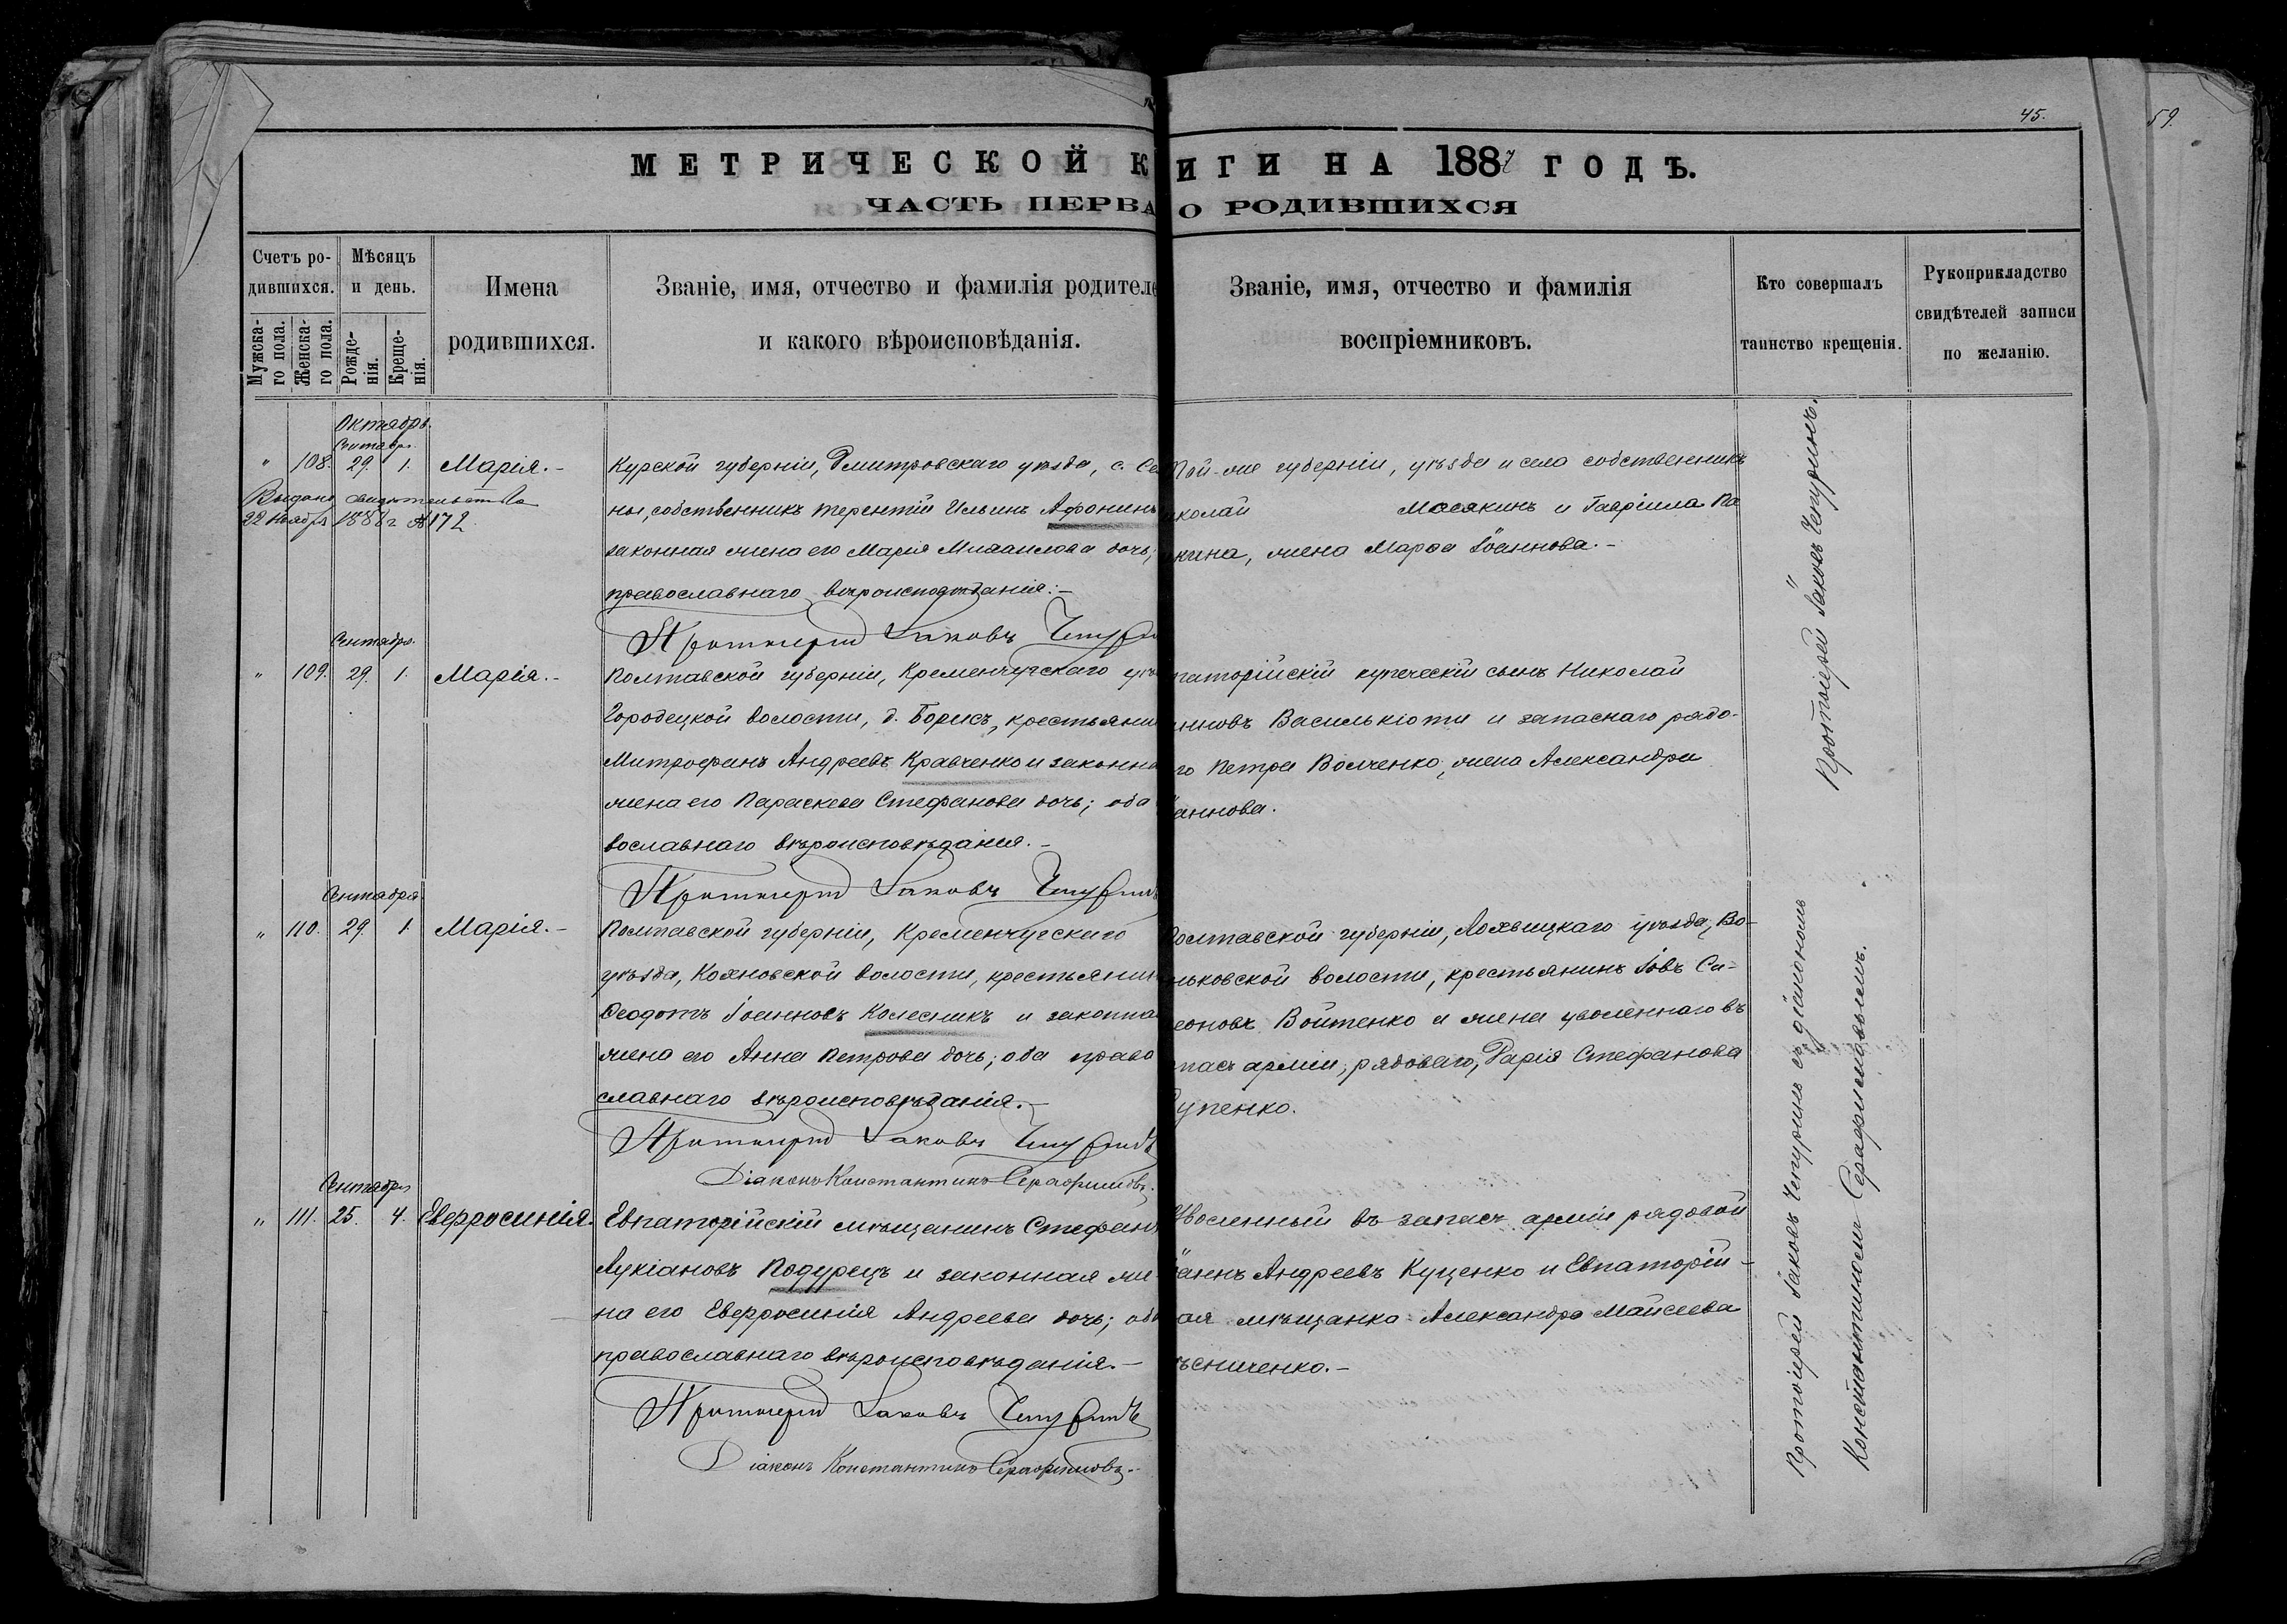 45.
59.
МЕТРИЧЕСКОЙ К
ИГИ НА 1887 ГОДЪ.
ЧАСТЬ ПЕРВА
О РОДИВШИХСЯ
Счетъ ро-
дившихся.
Мужска-
го пола.
Женска-
го пола.
Мѣсяцъ
и день.
Рожде-
нія.
Креще-
нія.
Имена
родившихся.
Званіе, имя, отчество и фамилія родителе
и какого вѣроисповѣданія.
Званіе, имя, отчество и фамилія
воспріемниковъ.
Кто совершалъ
таинство крещенія.
Рукоприкладство
свидѣтелей записи
по желанію.
Октябрь.
Сентябрь.
" 108. 29. 1. Марія.-
Выдано свидѣтельство
22 Ноября 1888 г. №172.
Курской губерніи, Дмитровскаго уѣзда, с. Се
ны, собственникъ Терентій Ильинъ Афонинъ
законная жена его Марія Михаилова дочь;
православнаго вѣроисповѣданія.-
Протоіерей Іаковъ Чепурин
Той-же губерніи, уѣзда и села собственникъ
иколай Мосякинъ и Гавріила По
кина, жена Марфа Іоаннова.-
Сентября.
" 109. 29. 1. Марія.-
Полтавской губерніи, Кременчугскаго уѣ
Городецкой волости, д. Борисъ, крестьяни
Митрофанъ Андреевъ Кравченко и законна
жена его Параскева Стефанова дочь; оба
вославнаго вѣроисповѣданія.-
Протоіерей Іаковъ Чепуринъ
паторійскій купеческій сынъ Николай
нновъ Василькіоти и запаснаго рядо-
го Петра Волченко, жена Александра
аннова.
Сентября
" 110. 29. 1. Марія.-
Полтавской губерніи, Кременчугскаго
уѣзда, Кояновской волости, крестьянин
Ѳеодотъ Іоанновъ Колесникъ и законна
жена его Анна Петрова дочь; оба право
славнаго вѣроисповѣданія.-
Протоіерей Іаковъ Чепуринъ
Діаконъ Константинъ Серафимовъ.
Полтавской губерніи, Лохвицкаго уѣзда, Во-
ньковской волости, крестьянинъ Іовъ Си-
еоновъ Войтенко и жена уволеннаго въ
пасъ арміи, рядоваго, Дарія Стефанова
упенко.
Сентября
" 111. 25. 4. Евфросинія.
Евпаторійскій мѣщанинъ Стефанъ
Лукіановъ Подурецъ и законная же-
на его Евфросинія Андреева дочь; оба
православнаго вѣроисповѣданія.-
Протоіерей Іаковъ Чепуринъ
Діаконъ Константинъ Серафимовъ.-
Уволенный въ запасъ арміи рядовой
аннъ Андреевъ Куценко и Евпаторій-
ая мѣщанка Александра Маисеева
ѣсниченко.-
Протоіерей Іаковъ Чепуринъ.
Протоіерей Іаковъ Чепуринъ съ діакономъ
Константиномъ Серафимовымъ.